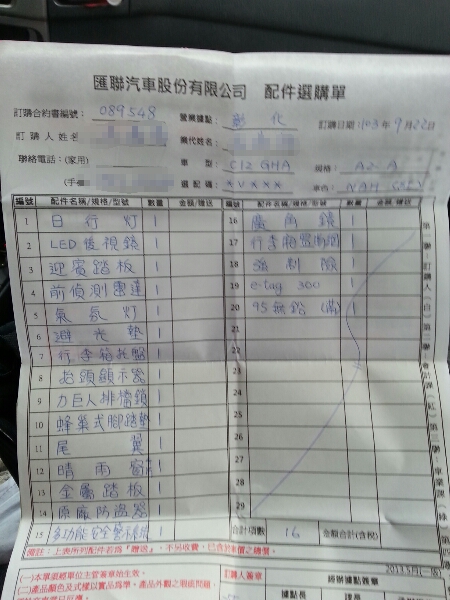 匯聯汽車股份有限公司 配件選購單
訂購合約書編號: 089548 營業據點: 彰化 訂購日期: 103年9月22日
訂購人姓名 業代姓名:
聯絡電話:(家用) 車型: C12 GHA 規格: A2-A
(手機 選配碼: XVXXX 車色:
編號 配件名稱/規格/型號 數量 金額/贈送 編號 配件名稱/規格/型號 數量 金額/贈送
1 日行灯 1 16 廣角鏡 1
2 LED後視鏡 1 17 行李廂置物網 1
3 迎賓踏板 1 18 強制險 1
4 前偵測雷達 1 19 e-tag 300 1
5 氣氛灯 1 20 95無鉛(滿) 1
6 避光墊 1 21
7 行李箱托盤 1 22
8 抬頭顯示器 1 23
9 力巨人排擋鎖 1 24
10 蜂巢式腳踏墊 1 25
11 尾翼 1 26
12 晴雨窗 27
13 金屬踏板 1 28
14 原廠防盜器 1 29
15 多功能安全警示 合計項數 16 金額合計(含稅)
備註:上表所列配件若為「贈送」,不另收費,已含於車價之總價。
(一)本單須經單位主管簽章始生效。 訂購人簽章 經辦據點簽章
(二)產品顏色及式樣以實品為準,產品外觀之瑕疵問題 據點長 課長